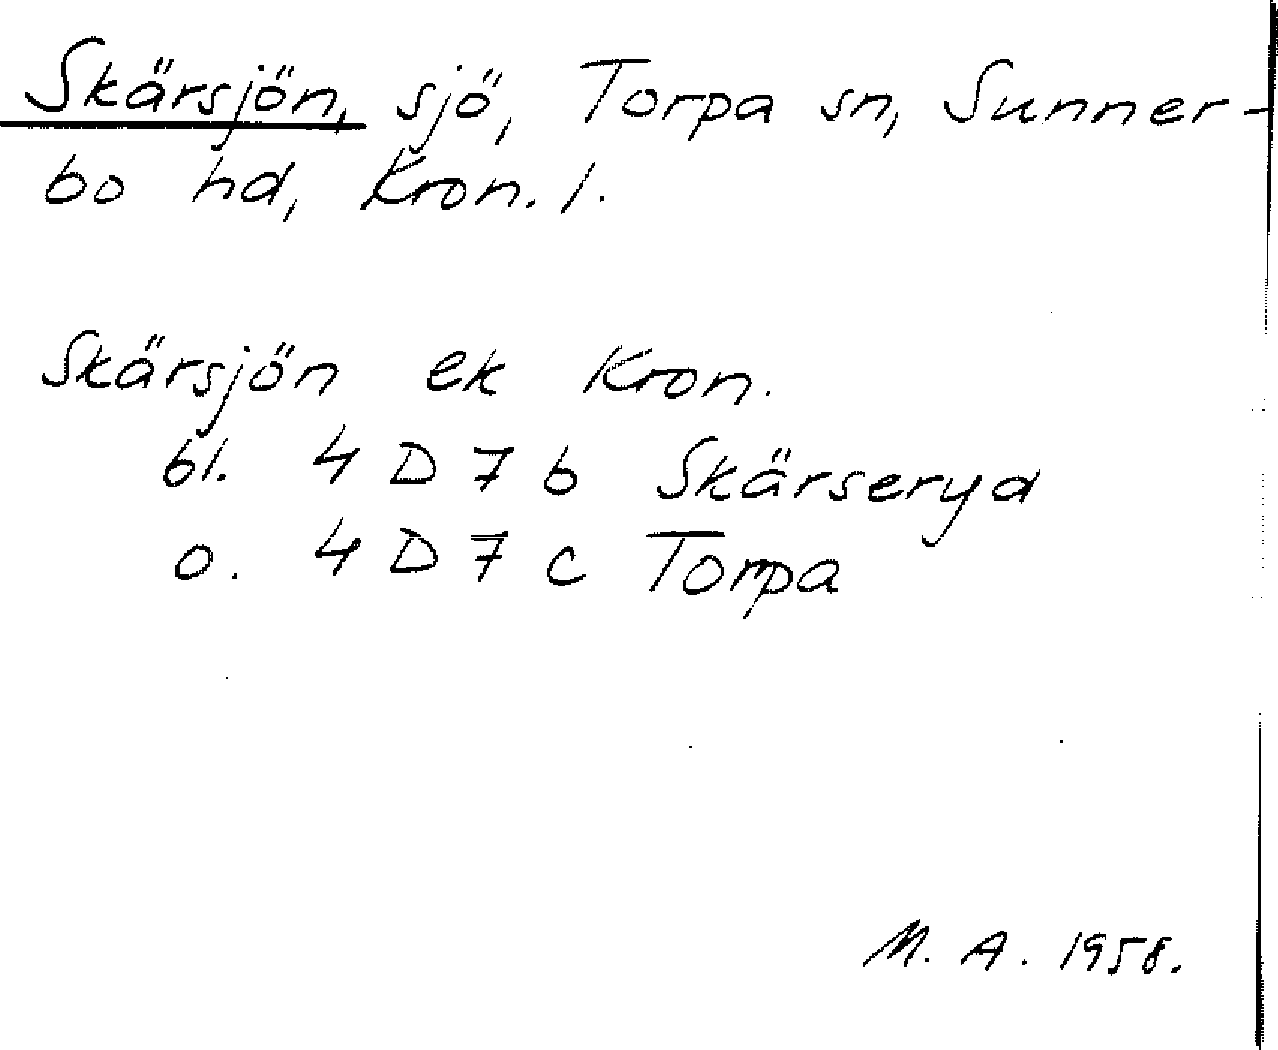 Skärsjön, sjö, Torpa sn, Sunner-
bo hd, Kron. l.
Skärsjön ek Kron.
bl. 4 D 7 b Skärseryd
o. 4 D 7 c Torpa
M. A. 1958.